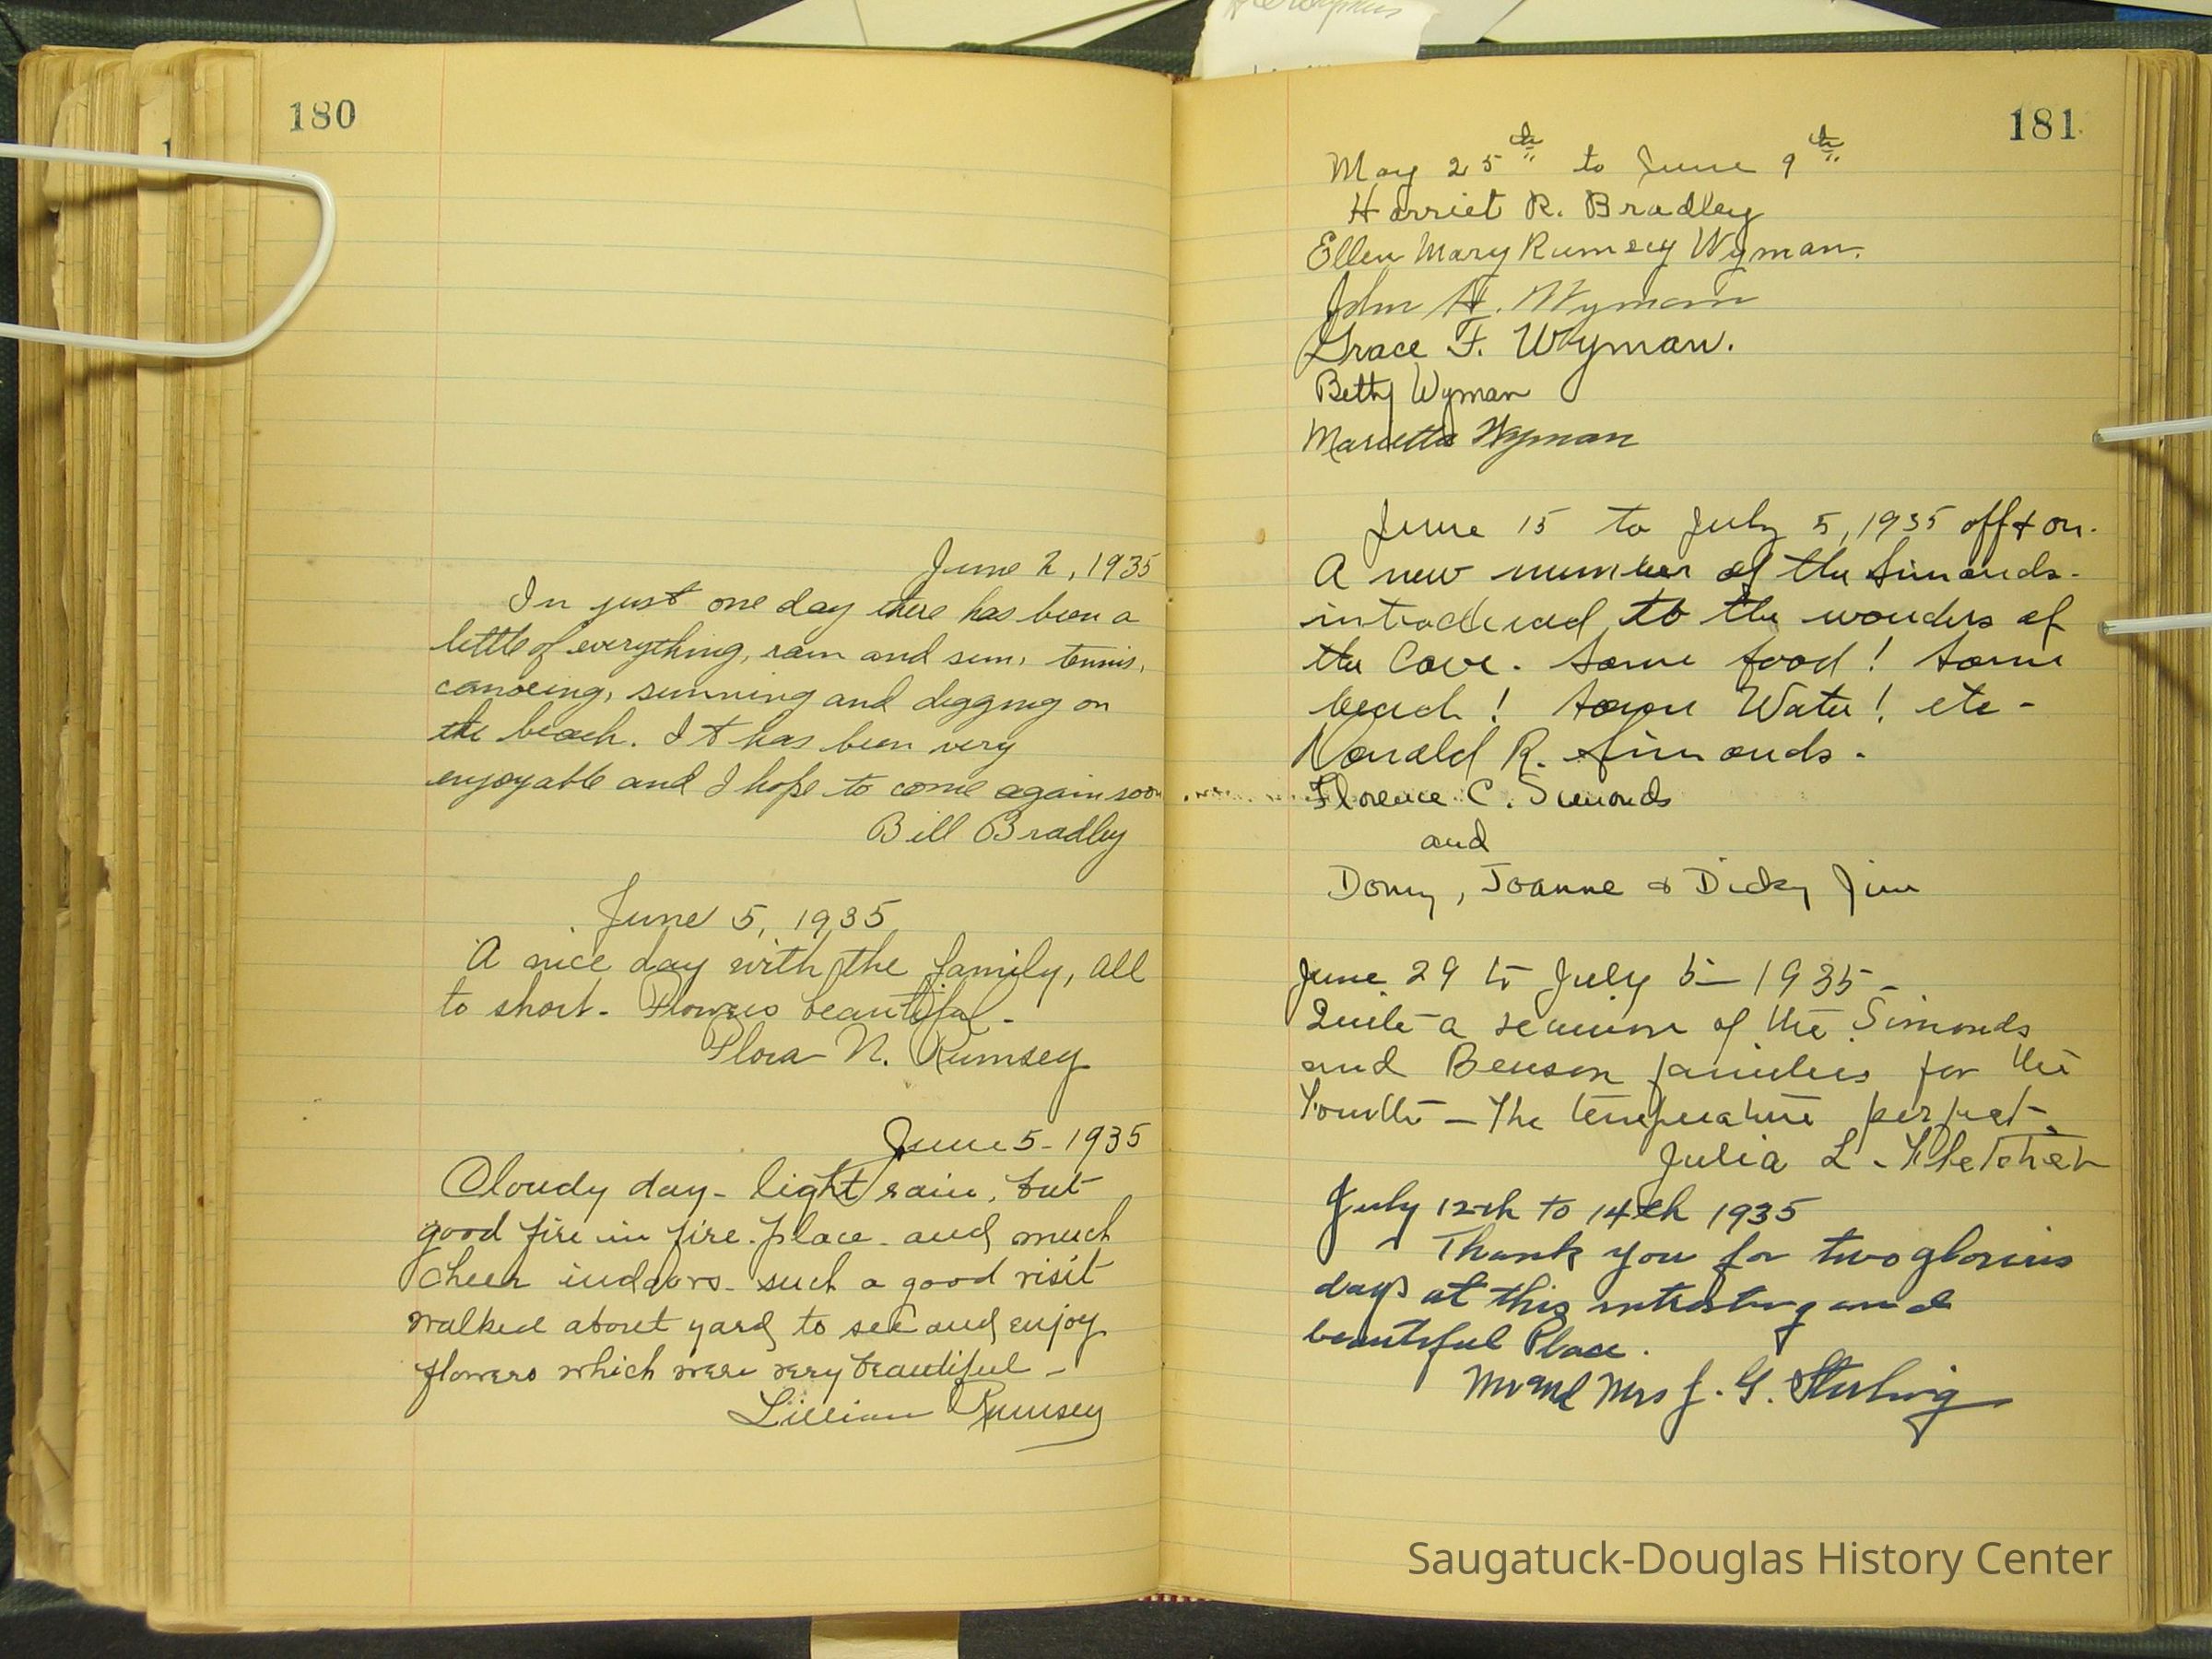 180
June 2, 1935
In just one day there has been a
little of everything, rain and sun, tennis,
canoeing, sunning and digging on
the beach. It has been very
enjoyable and I hope to come again soon
Bill Bradley
June 5, 1935
A nice day with the family, all
to short - Flowers beautiful -
Flora N. Rumsey
June 5 - 1935
Cloudy day - light rain, but
good fire in fire-place - and much
cheer indoors - such a good visit
walked about yard to see and enjoy
flowers which were very beautiful -
Lillian Rumsey
181
May 25th to June 9th
Harriet R. Bradley
Ellen Mary Rumsey Wyman.
John H. Wyman
Grace F. Wyman.
Betty Wyman
Marietta Wyman
June 15 to July 5, 1935 off & on.
A new number of the Simonds -
introduced to the wonders of
the Cove. Some food! Some
beach! Some Water! etc -
Donald R. Simonds -
Florence C. Simonds
and
Donny, Joanne & Dicky Jim
June 29 to July 5 - 1935 -
Quite a reunion of the Simonds
and Benson families for the
Fourth - The temperature perfect.
Julia L. Fletcher
July 12th to 14th 1935
Thank you for two glorius
days at this intresting and
beautiful Place.
Mr and Mrs J. G. Sterling
Saugatuck-Douglas History Center